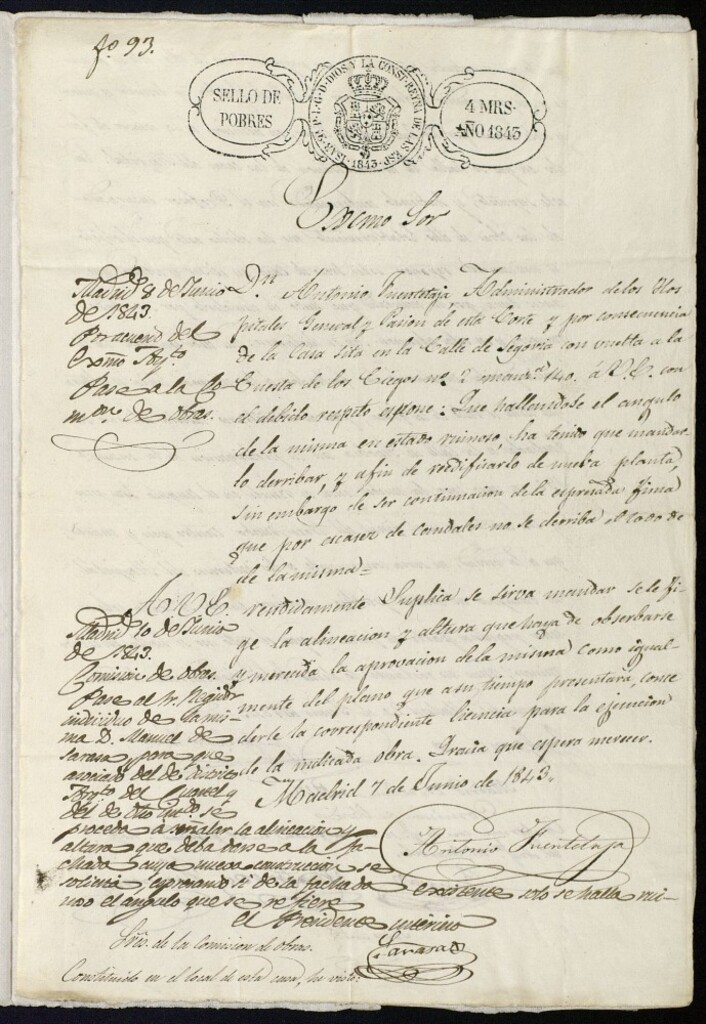 fo. 93.
SELLO DE
POBRES
ISAB. 2ª. P. L. G. D. DIOS Y LA CONST. REYNA DE LAS ESP.
1843.
4 MRS.
AÑO 1843
Excmo Sor
Madrid 8 de Junio
de 1843.
Por acuerdo del
Excmo Ayto.
Pase a la Co
mon de obras.
Dn Antonio Fuentetaja, Administrador de los Hos
pitales General y Pasion de esta Corte y por consecuencia
de la Casa sita en la Calle de Segovia con vuelta a la
Cuesta de los Ciegos no. 2 manza. 140. á V.E. con
el debido respeto espone: Que hallandose el angulo
de la misma en estado ruinoso, ha tenido que mandar
lo derribar, y afin de reedificarlo de nueba planta,
sin embargo de ser continuacion de la espresada finca
que por escasez de caudales no se derriba el todo de
de la misma=
A V.E. rendidamente Suplica se sirva mandar se le fi
ge la alineacion y altura que haya de observarse
y merecida la aprovacion de la misma como igual-
mente del plano que a su tiempo presentará, conce
derle la correspondiente licencia para la ejecucion
de la indicada obra. Gracia que espera merecer.
Madrid 7 de Junio de 1843.
Antonio Fuentetaja
Madrid 10 de Junio
de 1843.
Comision de obras.
Pase al Sr. Regidor
individuo de la mis-
ma D. Manuel de
Sarasa para que
asociado del de distrito
del Cuartel y
del de se
proceda a señalar la alineacion y
altura que deba darse a la fa-
chada cuya nueva construccion se
solicita, espresando si de la fachada existente solo se halla rui-
noso el angulo que se refiere
El Presidente interino
Sarasa
Sres. de la Comision de obras.
Constituido en el local de esta casa, he visto